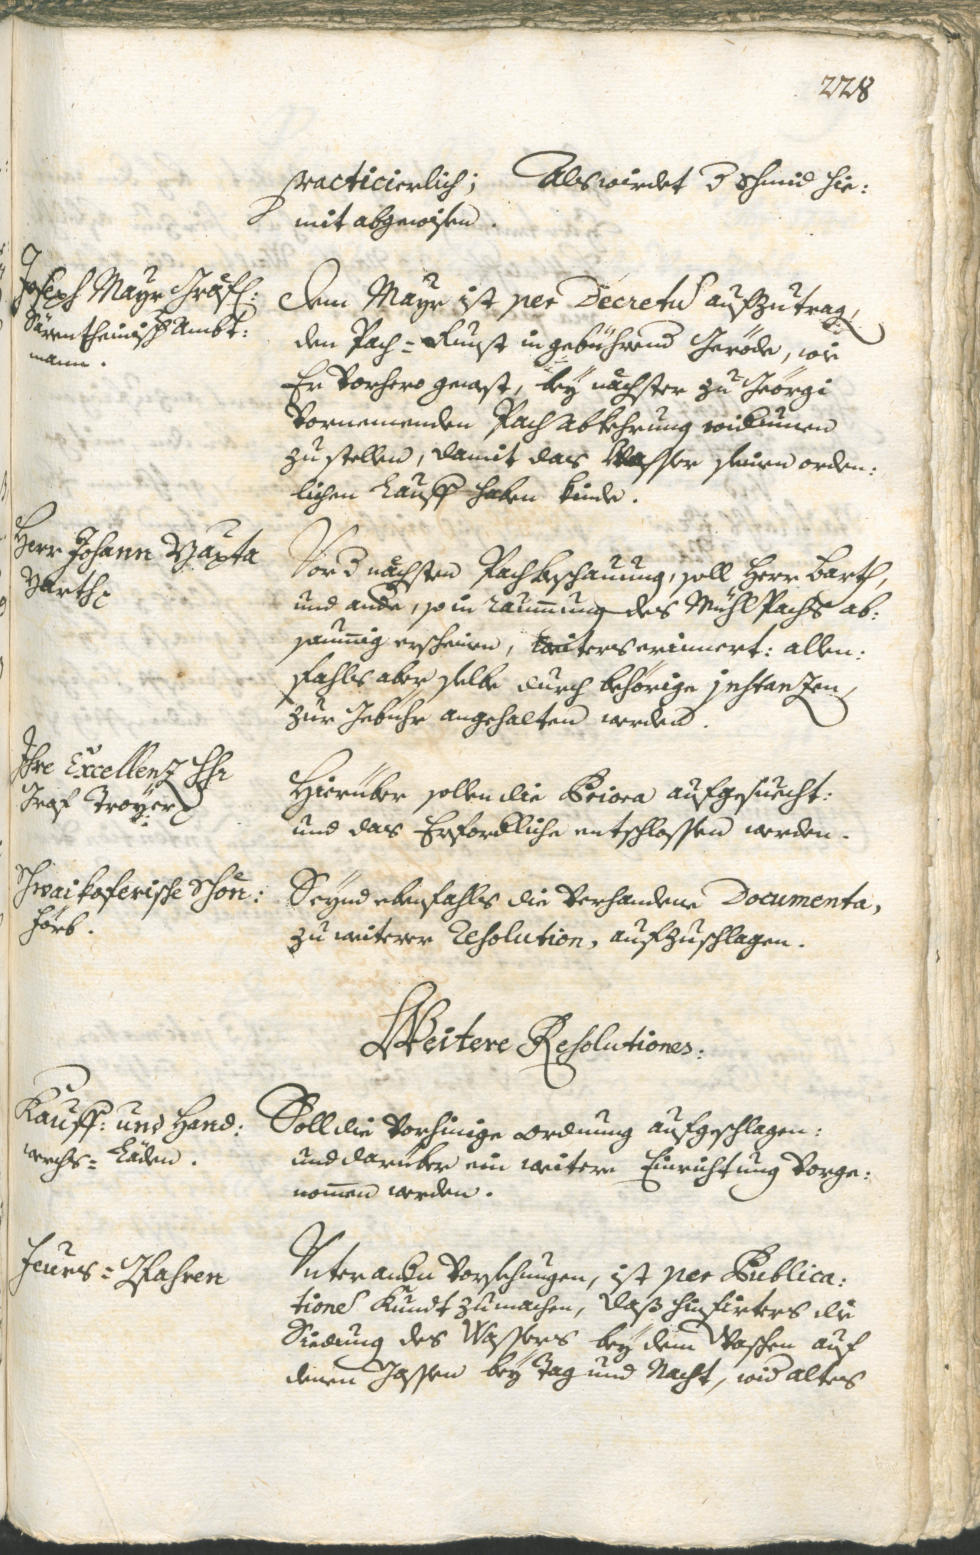 228
practicierlich; Als wirdet d Schmid hie:
mit abgewisen.
Joseph Mayr Gräfl:
Särentheinisch Ambt:
mann.
Dem Mayr ist per Decretu aufzutrag,
den Pach= in gebührend Geröde, wie
Er vorhero gewest, bey nächster zu Geörgi
vornemenden Pach Abkehrung widerumen
zu stellen, damit das Wasser seinen orden:
lichen Lauff haben kinde.
Herr Johann Bapta
Barth
Vor d nächsten Pachbeschauung, soll Herr Barth,
und ande, so in raumung des Mühl Pachs ab:
saumig erscheinen, weiters erinnert: allen:
fahls aber selbe durch behörige jnstanzen,
zur Gebühr angehalten werden.
Ihre Excellenz Hr
Graf Troyer
Hierüber sollen die Priora aufgesuecht:
und das Erfordliche entschlossen werden.
Schwaikoferische Schön:
hörb.
Seynd ebenfahls die verhandene Documenta,
zu weiterer Resolution, aufzuschlagen.
Weitere Resolutiones:
Kauff: und Hand:
werchs= Läden.
Soll die vorhinige ordnung aufgeschlagen:
und darüber ein weitere Einrichtung vorge:
nomen werden.
Feurs= Gfahren
Unter andn Vorsehungen, ist per Publica:
tione Kundt zumachen, daß hinfirters die
Siedung des Wassers bey dem Waschen auf
denen Gassen bey Tag und Nacht, wid altes